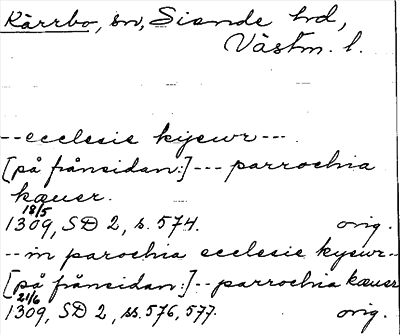 Kärrbo, sn, Siende hd,
Västm. l.
--ecclesie kyewr---
[på frånsidan:]---parrochia
kæuer.
18/5
1309, SD 2, s. 574. orig.
--in parochia ecclesie kyewr--
[på frånsidan:]--parrochia kæuer
21/6
1309, SD 2, ss. 576, 577. orig.